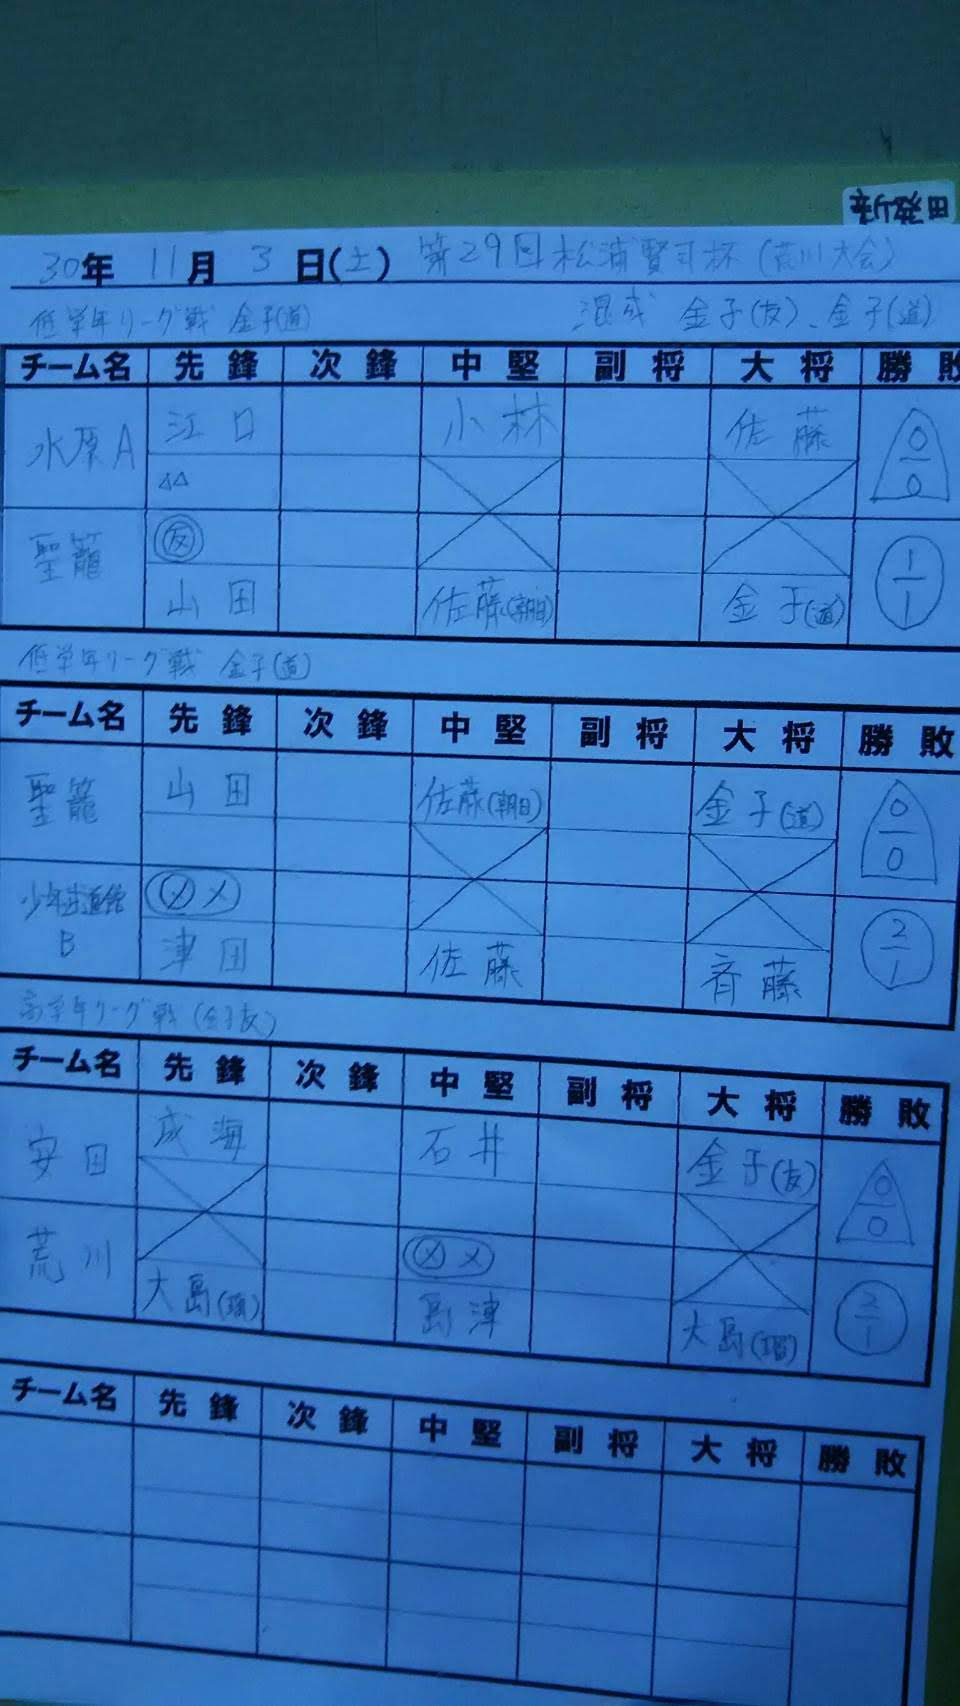 新発田
30年 11月 3日(土) 第29回松浦賢司杯(荒川大会)
低学年リーグ戦 金子(道) 混成 金子(友)、金子(道)
チーム名 先鋒 次鋒 中堅 副将 大将 勝敗
水原A 江口 小林 佐藤 0/0
△△
聖籠 反 1/1
山田 佐藤(朝日) 金子(道)
低学年リーグ戦 金子(道)
チーム名 先鋒 次鋒 中堅 副将 大将 勝敗
聖籠 山田 佐藤(朝日) 金子(道) 0/0
少年武道館B メメ 2/1
津田 佐藤 斉藤
高学年リーグ戦(金子友)
チーム名 先鋒 次鋒 中堅 副将 大将 勝敗
安田 成海 石井 金子(友) 0/0
荒川 メメ 2/1
大島 島津 大島
チーム名 先鋒 次鋒 中堅 副将 大将 勝敗